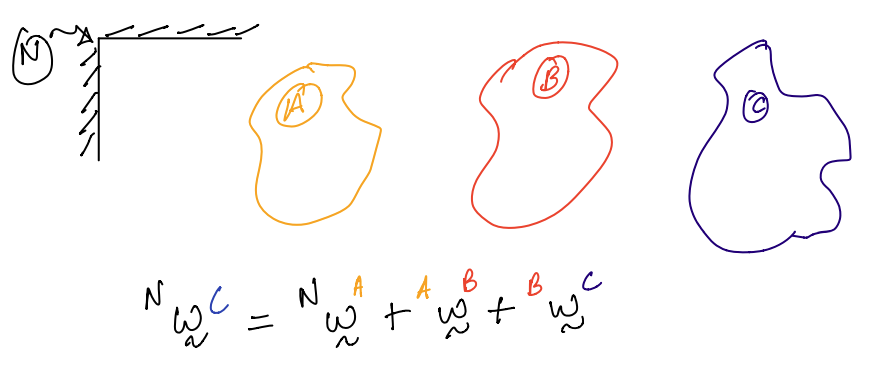 N
A
B
C
ᴺω̰ꟲ = ᴺω̰ᴬ + ᴬω̰ᴮ + ᴮω̰ꟲ